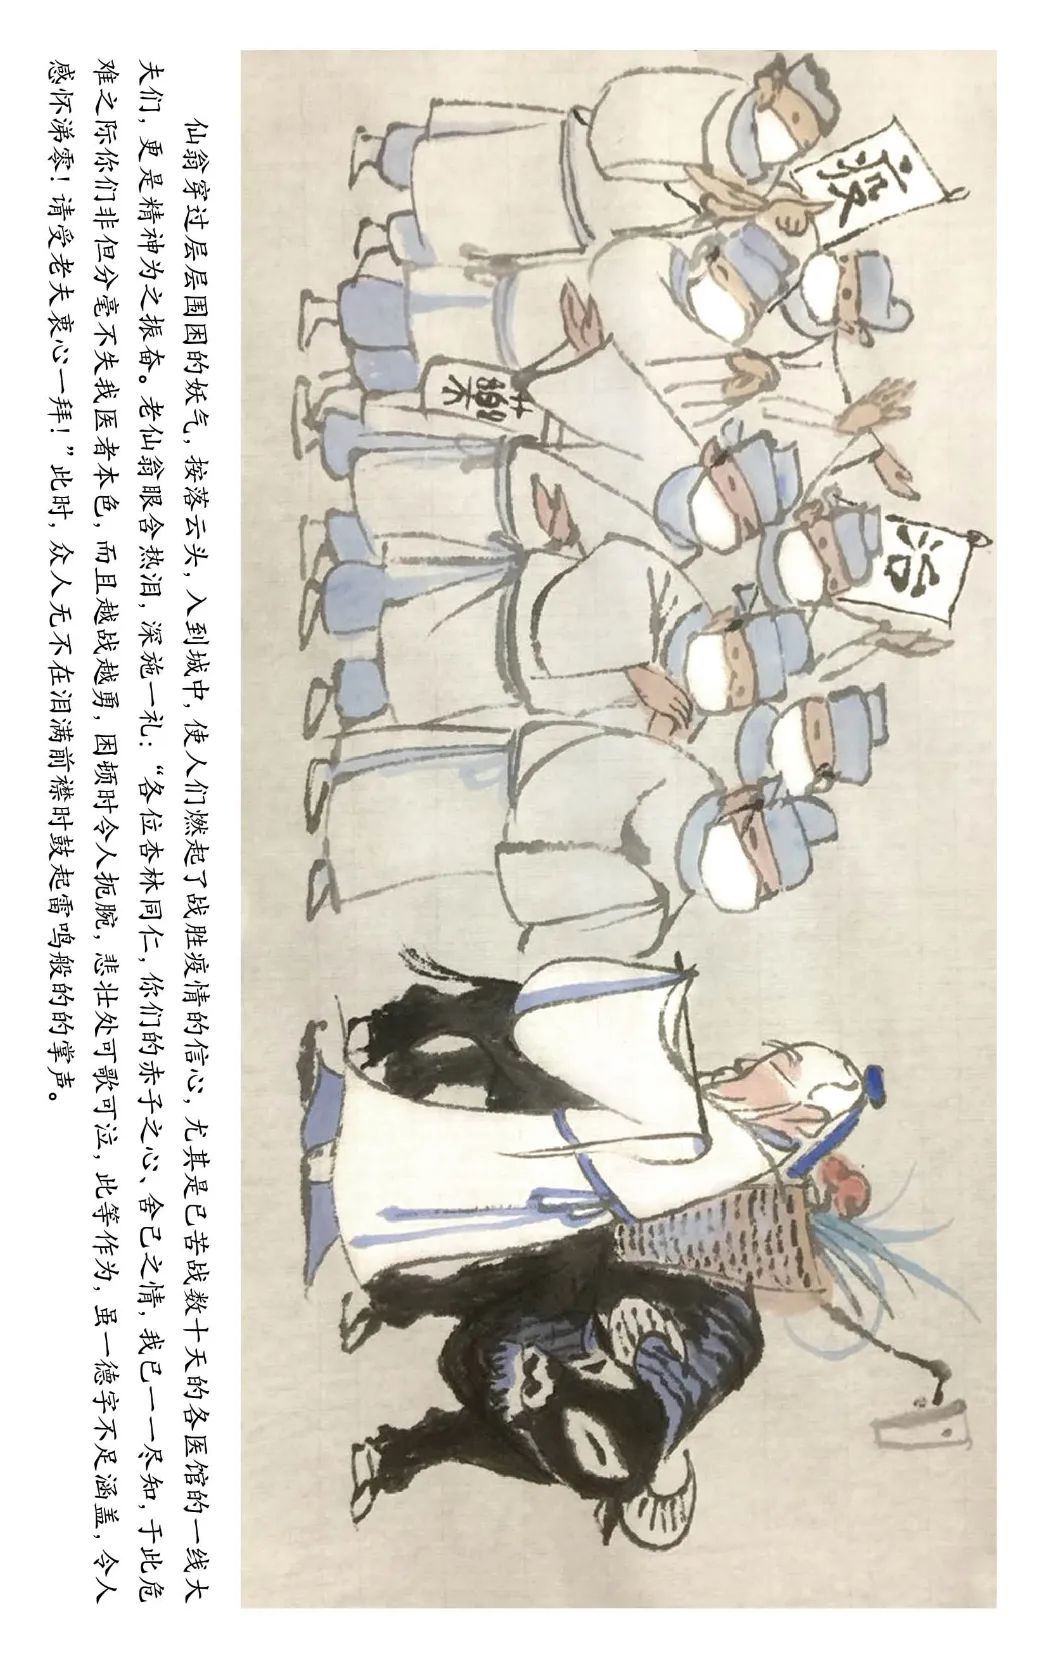 疫
藥
治
仙翁穿过层层围困的妖气，按落云头，入到城中，使人们燃起了战胜疫情的信心，尤其是已苦战数十天的各医馆的一线大
夫们，更是精神为之振奋。老仙翁眼含热泪，深施一礼：“各位杏林同仁，你们的赤子之心、舍己之情，我已一一尽知，于此危
难之际你们非但分毫不失我医者本色，而且越战越勇，困顿时令人扼腕，悲壮处可歌可泣，此等作为，虽一德字不足涵盖，令人
感怀涕零！请受老夫衷心一拜！”此时，众人无不在泪满前襟时鼓起雷鸣般的的掌声。